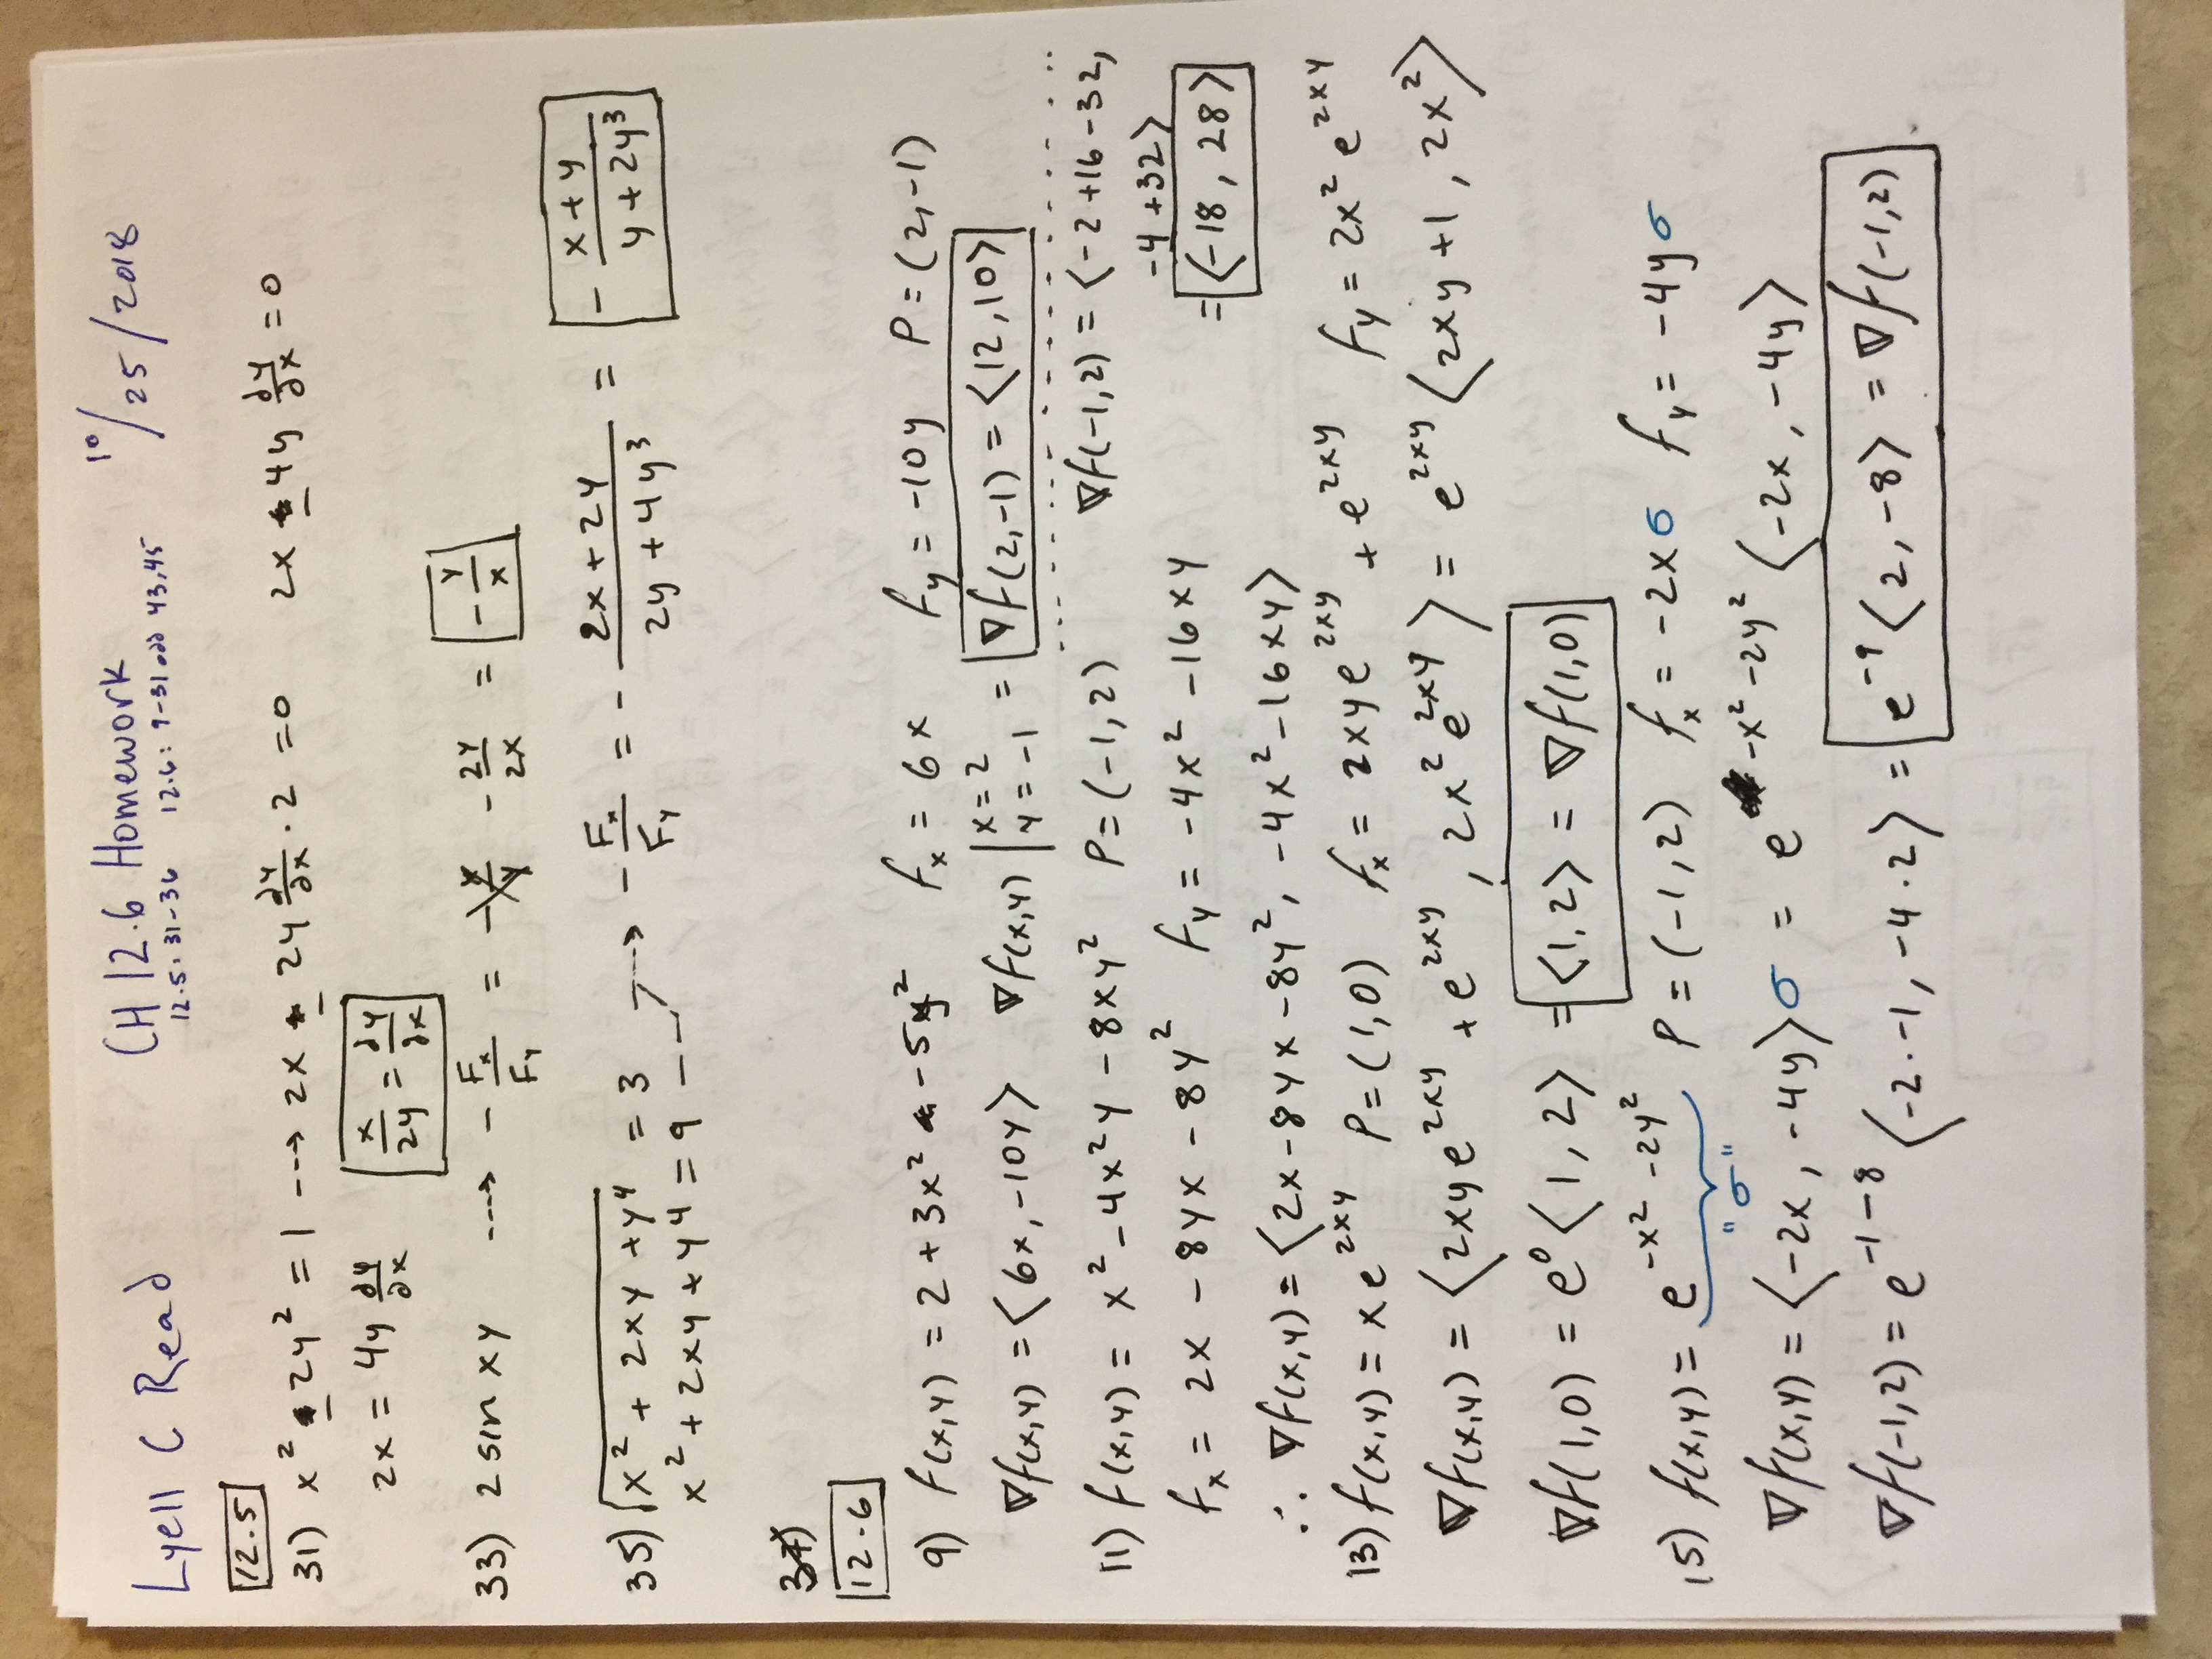 Lyell C Read CH 12.6 Homework 10/25/2018
12.5: 31-36 12.6: 9-31 odd 43,45
12.5
31) x² - 2y² = 1 ---> 2x - 2y ∂y/∂x · 2 = 0 2x - 4y ∂y/∂x = 0
2x = 4y ∂y/∂x x/2y = ∂y/∂x
33) 2 sin xy ---> - Fx/Fy = - x/y - 2y/2x = - y/x
35) √(x² + 2xy + y⁴) = 3 ---> - Fx/Fy = - (2x + 2y)/(2y + 4y³) = - (x + y)/(y + 2y³)
x² + 2xy + y⁴ = 9
37)
12.6
9) f(x,y) = 2 + 3x² - 5y² fx = 6x fy = -10y P = (2,-1)
∇f(x,y) = ⟨6x, -10y⟩ ∇f(x,y) | x = 2 y = -1 = ∇f(2,-1) = ⟨12,10⟩
11) f(x,y) = x² - 4x²y - 8xy² P = (-1,2) ∇f(-1,2) = ⟨-2 + 16 - 32,
-4 + 32⟩
fx = 2x - 8yx - 8y² fy = -4x² - 16xy = ⟨-18, 28⟩
∴ ∇f(x,y) = ⟨2x - 8yx - 8y², -4x² - 16xy⟩
13) f(x,y) = xe^(2xy) P = (1,0) fx = 2xye^(2xy) + e^(2xy) fy = 2x² e^(2xy)
∇f(x,y) = ⟨2xye^(2xy) + e^(2xy), 2x² e^(2xy)⟩ = e^(2xy) ⟨2xy + 1, 2x²⟩
∇f(1,0) = e⁰ ⟨1, 2⟩ = ⟨1,2⟩ = ∇f(1,0)
15) f(x,y) = e^(-x² - 2y²) P = (-1,2) fx = -2xσ fy = -4yσ
"σ"
∇f(x,y) = ⟨-2x, -4y⟩σ = e^(-x² - 2y²) ⟨-2x, -4y⟩
∇f(-1,2) = e^(-1-8) ⟨-2·-1, -4·2⟩ = e⁻⁹ ⟨2, -8⟩ = ∇f(-1,2)